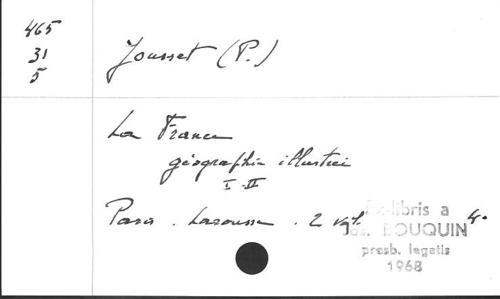 465
31
5
Jousset (P.)
La France
géographie illustrée
I-II
Paris. Larousse. 2 vol. 4°
Ex-libris a
Jos. BOUQUIN
presb. legatis
1968